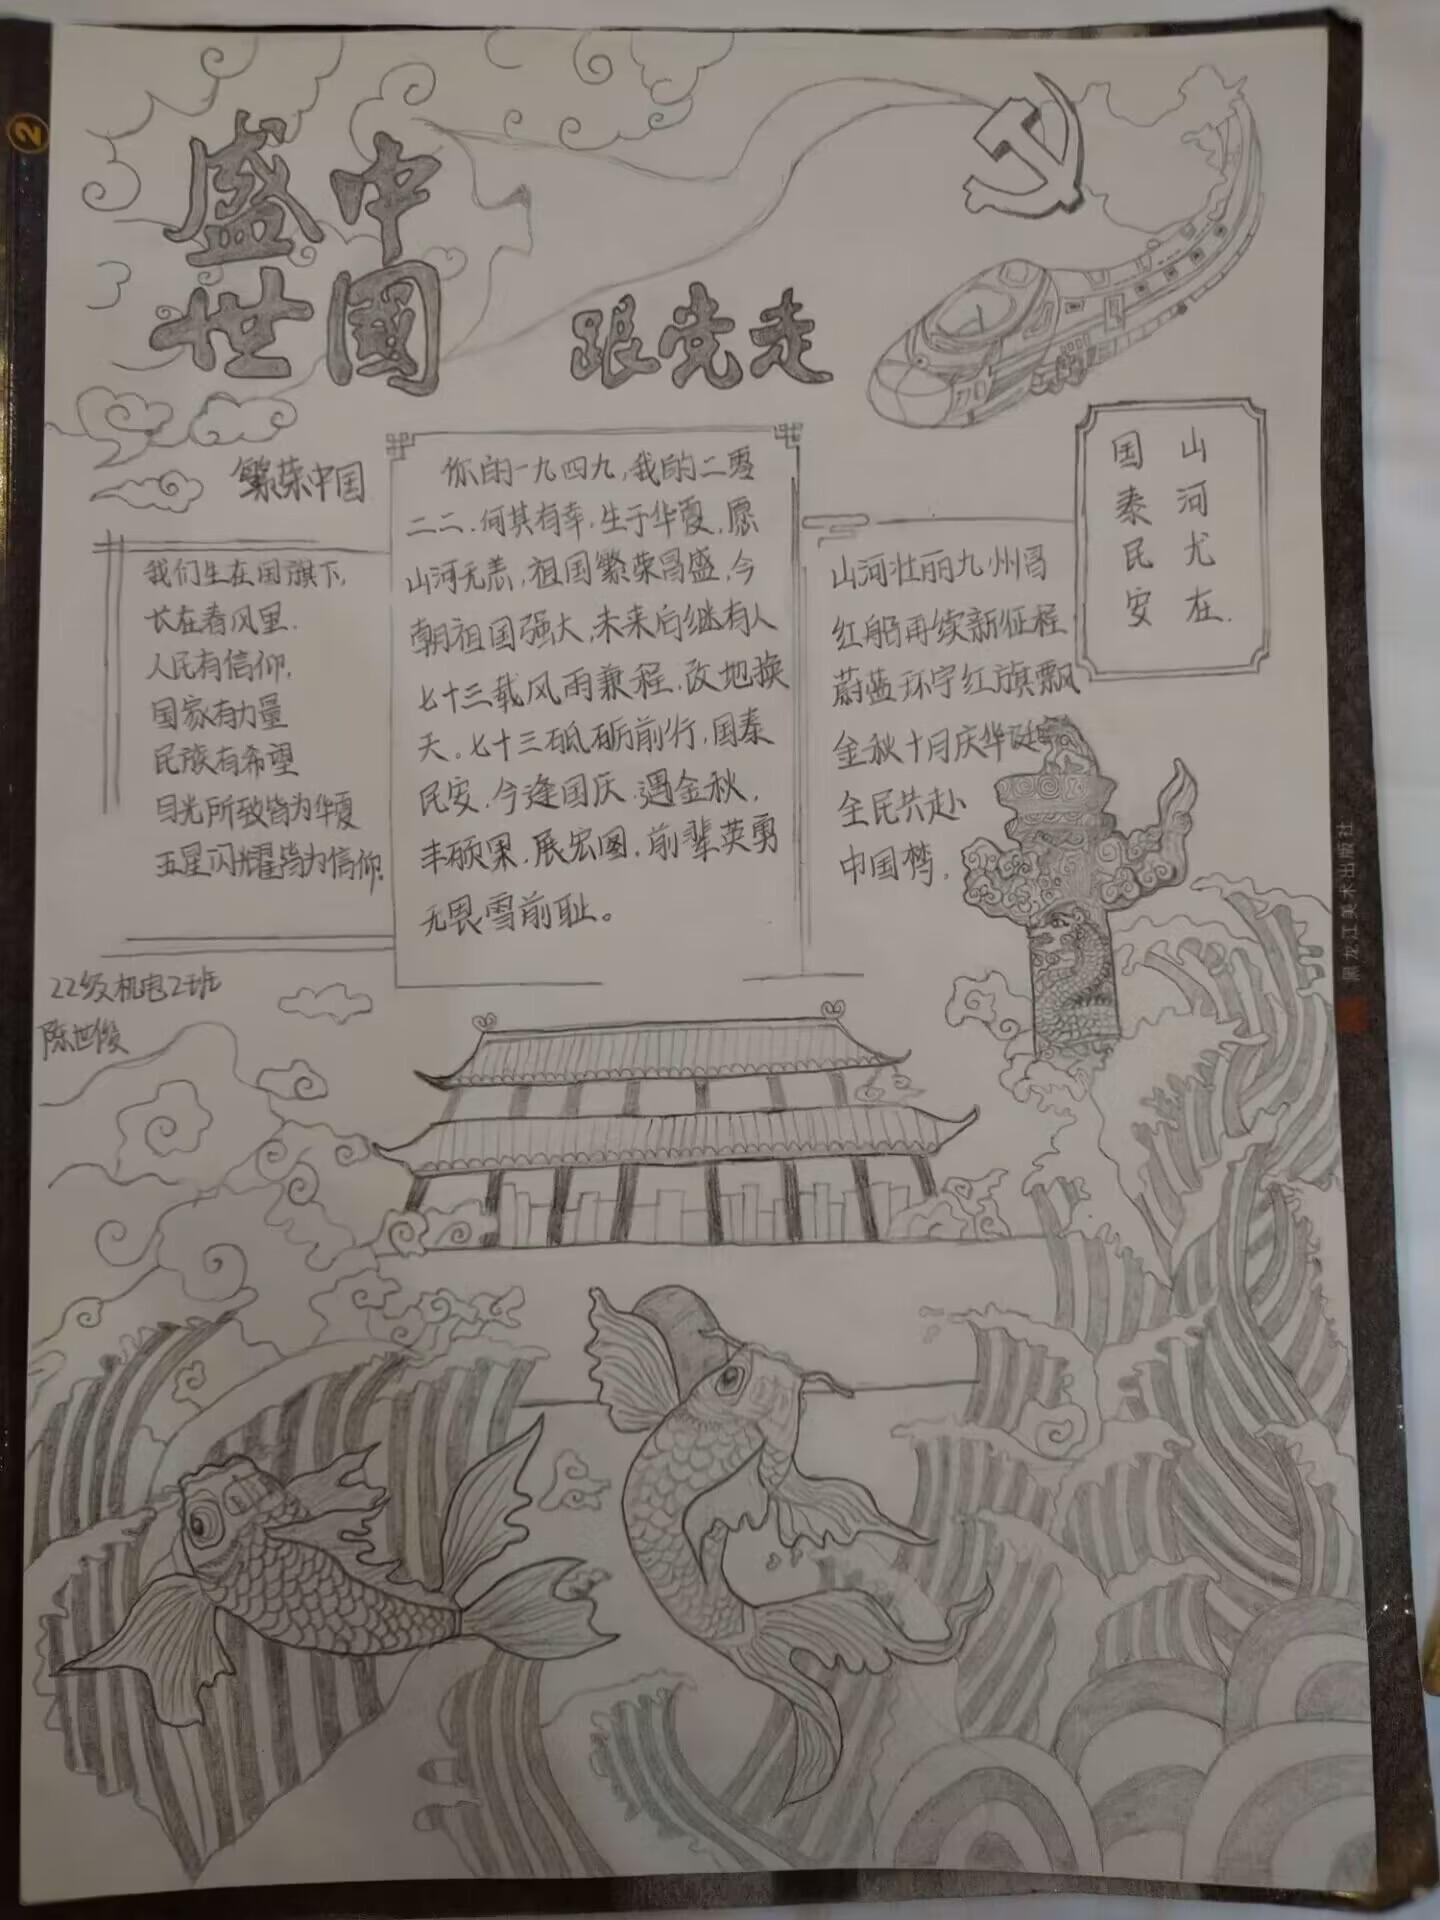 盛世
中国
跟党走
繁荣中国
我们生在国旗下,
长在春风里.
人民有信仰.
国家有力量
民族有希望
目光所致皆为华夏
五星闪耀皆为信仰.
22级机电2班
陈世俊
你的一九四九,我的二零
二二.何其有幸.生于华夏.愿
山河无恙,祖国繁荣昌盛.今
朝祖国强大,未来后继有人
七十三载风雨兼程.改地换
天.七十三砥砺前行.国泰
民安.今逢国庆.遇金秋.
丰硕果.展宏图.前辈英勇
无畏雪前耻。
山河壮丽九州昌
红船再续新征程
蔚蓝环宇红旗飘
金秋十月庆华诞
全民共赴
中国梦.
山河尤在.
国泰民安
黑龙江美术出版社
2